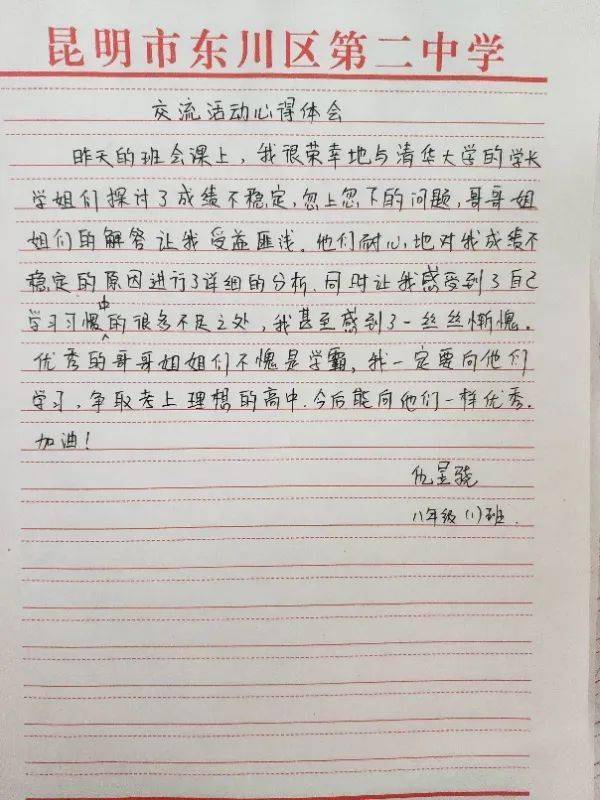 昆明市东川区第二中学
交流活动心得体会
昨天的班会课上，我很荣幸地与清华大学的学长
学姐们探讨了成绩不稳定，忽上忽下的问题，哥哥姐
姐们的解答让我受益匪浅。他们耐心地对我成绩不
稳定的原因进行了详细的分析。同时让我感受到了自己
学习习惯中的很多不足之处，我甚至感到了一丝丝惭愧。
优秀的哥哥姐姐们不愧是学霸，我一定要向他们
学习，争取考上理想的高中。今后能向他们一样优秀。
加油！
仇显骁
八年级（1）班.